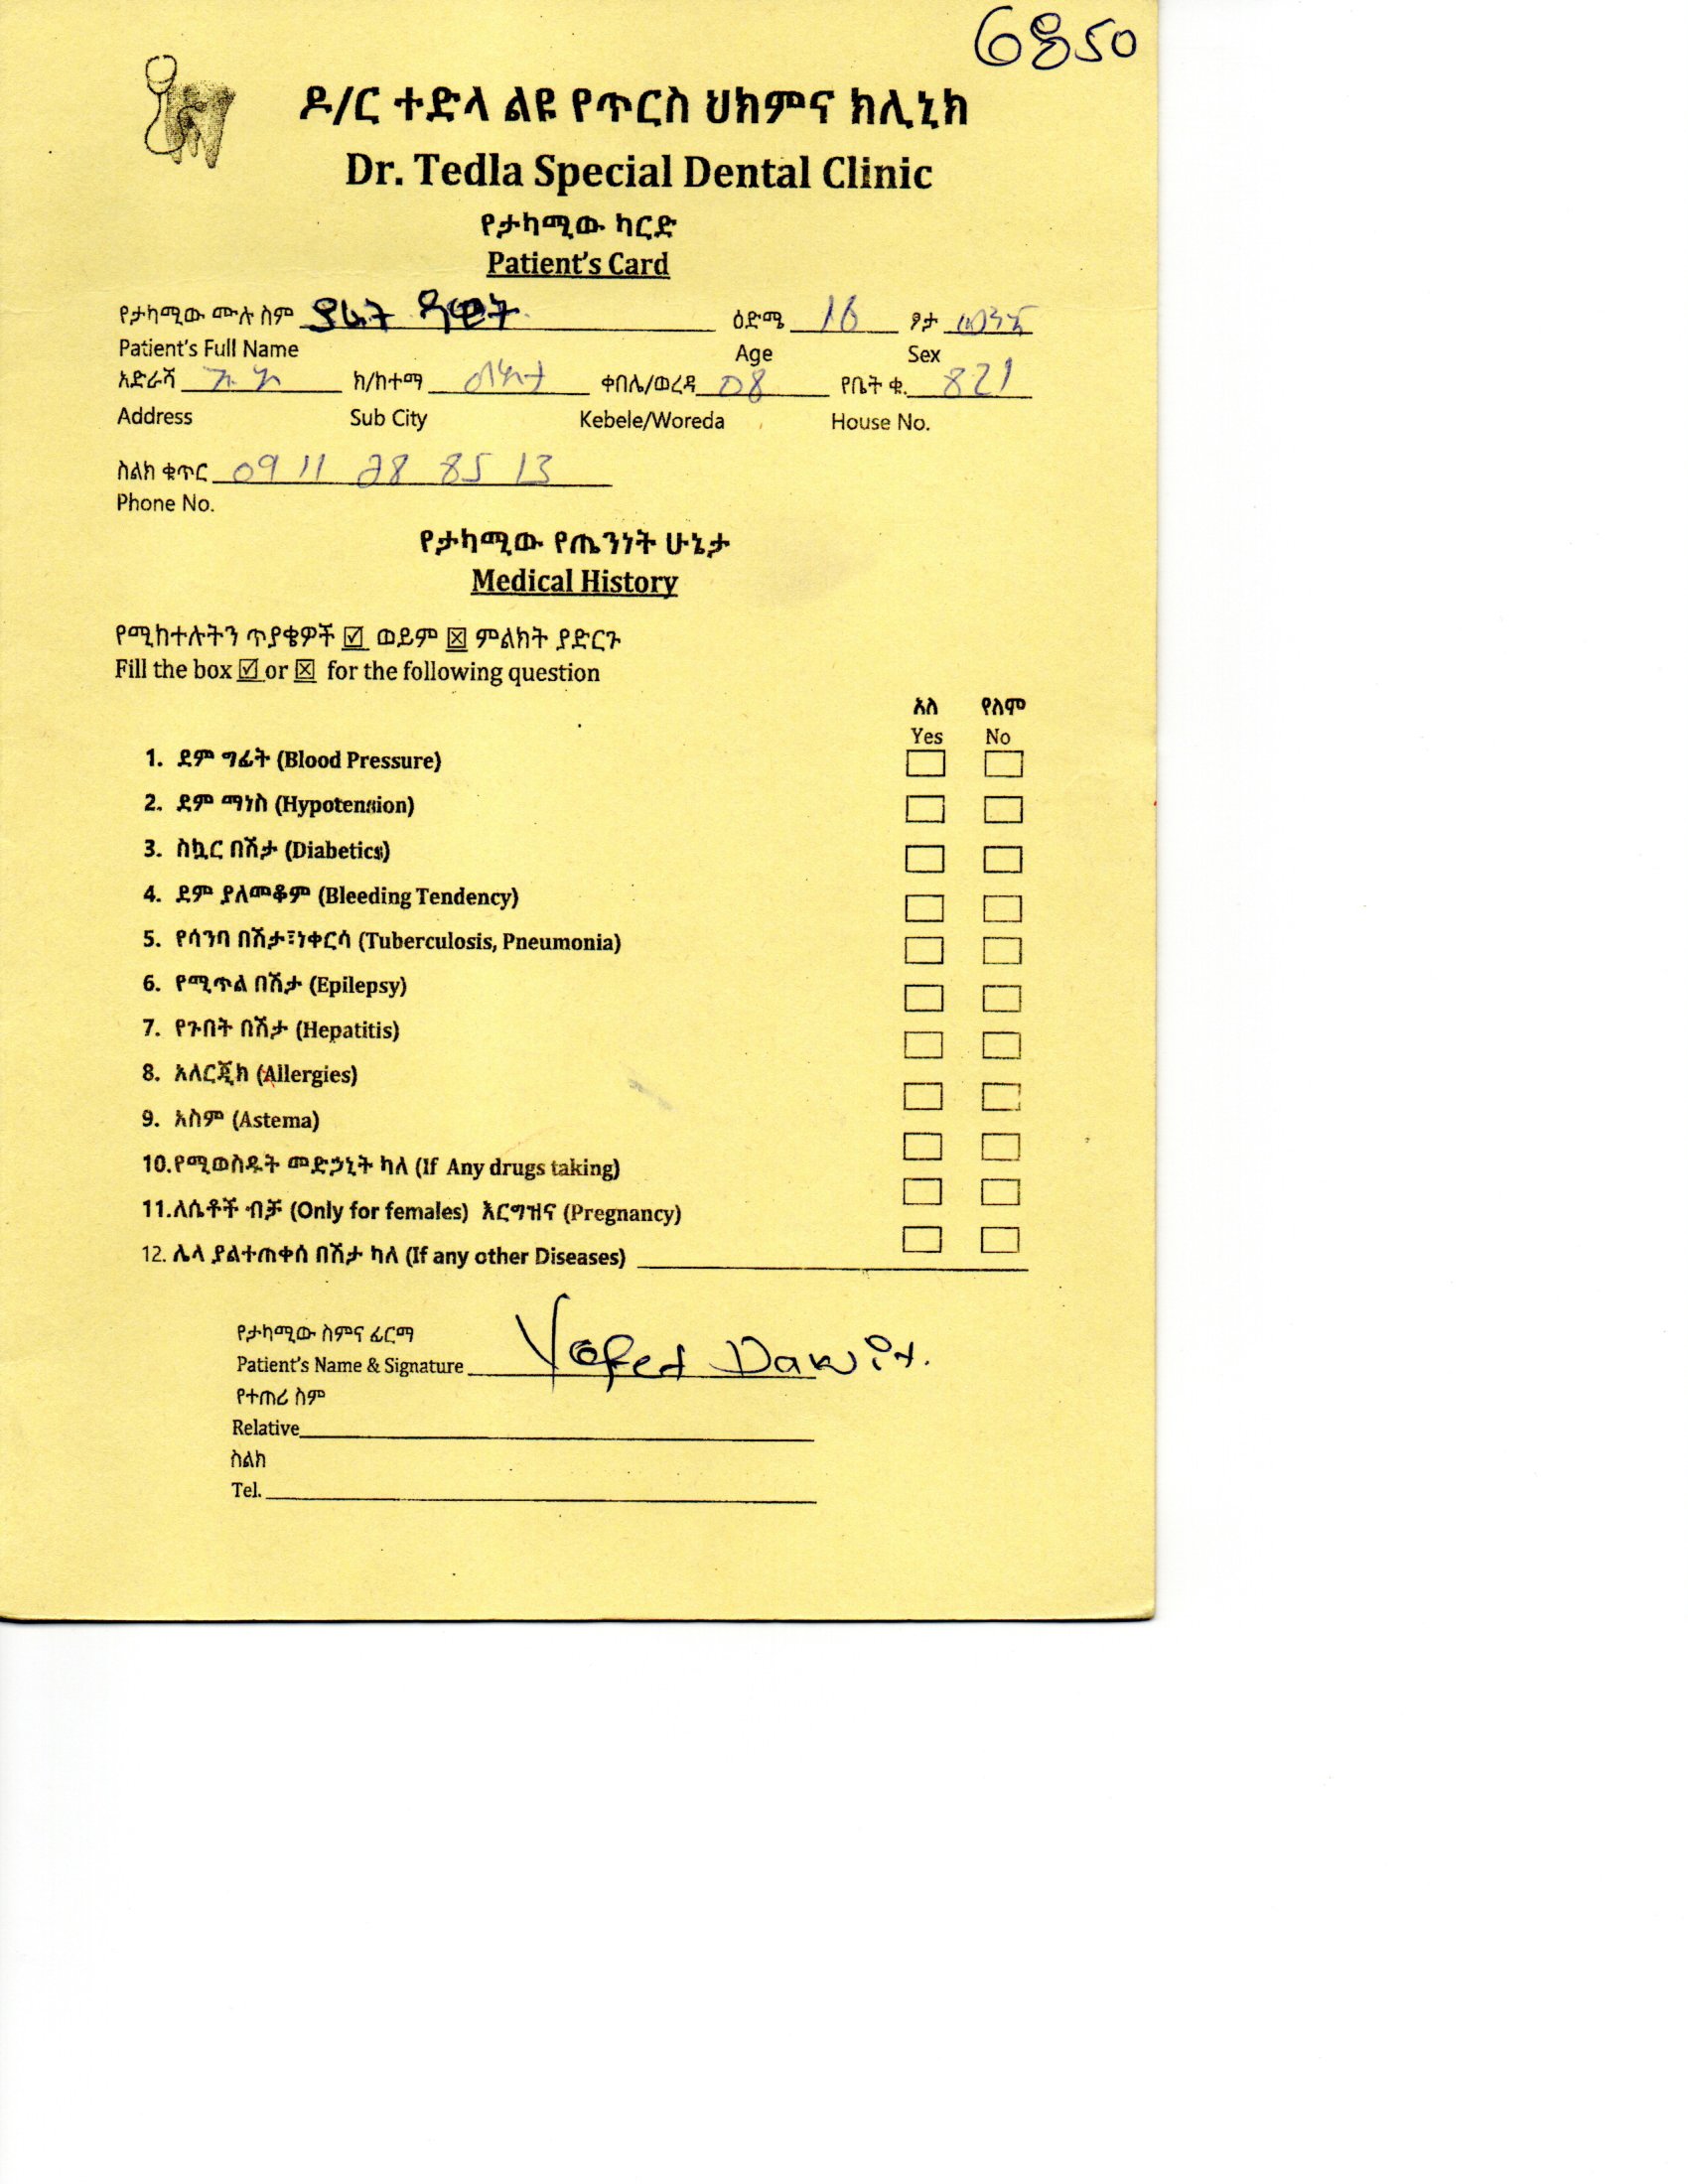 6850
ዶ/ር ተድላ ልዩ የጥርስ ህክምና ክሊኒክ
Dr. Tedla Special Dental Clinic
የታካሚው ካርድ
Patient's Card
የታካሚው ሙሉ ስም ያፌት ዳዊት ዕድሜ 16 ፆታ ወንድ
Patient's Full Name Age Sex
አድራሻ ክ/ከተማ ቀበሌ/ወረዳ 08 የቤት ቁ. 821
Address Sub City Kebele/Woreda House No.
ስልክ ቁጥር 09 11 28 85 13
Phone No.
የታካሚው የጤንነት ሁኔታ
Medical History
የሚከተሉትን ጥያቄዎች ☑ ወይም ☒ ምልክት ያድርጉ
Fill the box ☑ or ☒ for the following question
አለ የለም
Yes No
1. ደም ግፊት (Blood Pressure)
2. ደም ማነስ (Hypotension)
3. ስኳር በሽታ (Diabetics)
4. ደም ያለመቆም (Bleeding Tendency)
5. የሳንባ በሽታ፣ነቀርሳ (Tuberculosis, Pneumonia)
6. የሚጥል በሽታ (Epilepsy)
7. የጉበት በሽታ (Hepatitis)
8. አለርጂክ (Allergies)
9. አስም (Astema)
10.የሚወስዱት መድኃኒት ካለ (If Any drugs taking)
11.ለሴቶች ብቻ (Only for females) እርግዝና (Pregnancy)
12. ሌላ ያልተጠቀሰ በሽታ ካለ (If any other Diseases)
የታካሚው ስምና ፊርማ
Patient's Name & Signature Yafet Dawit.
የተጠሪ ስም
Relative
ስልክ
Tel.